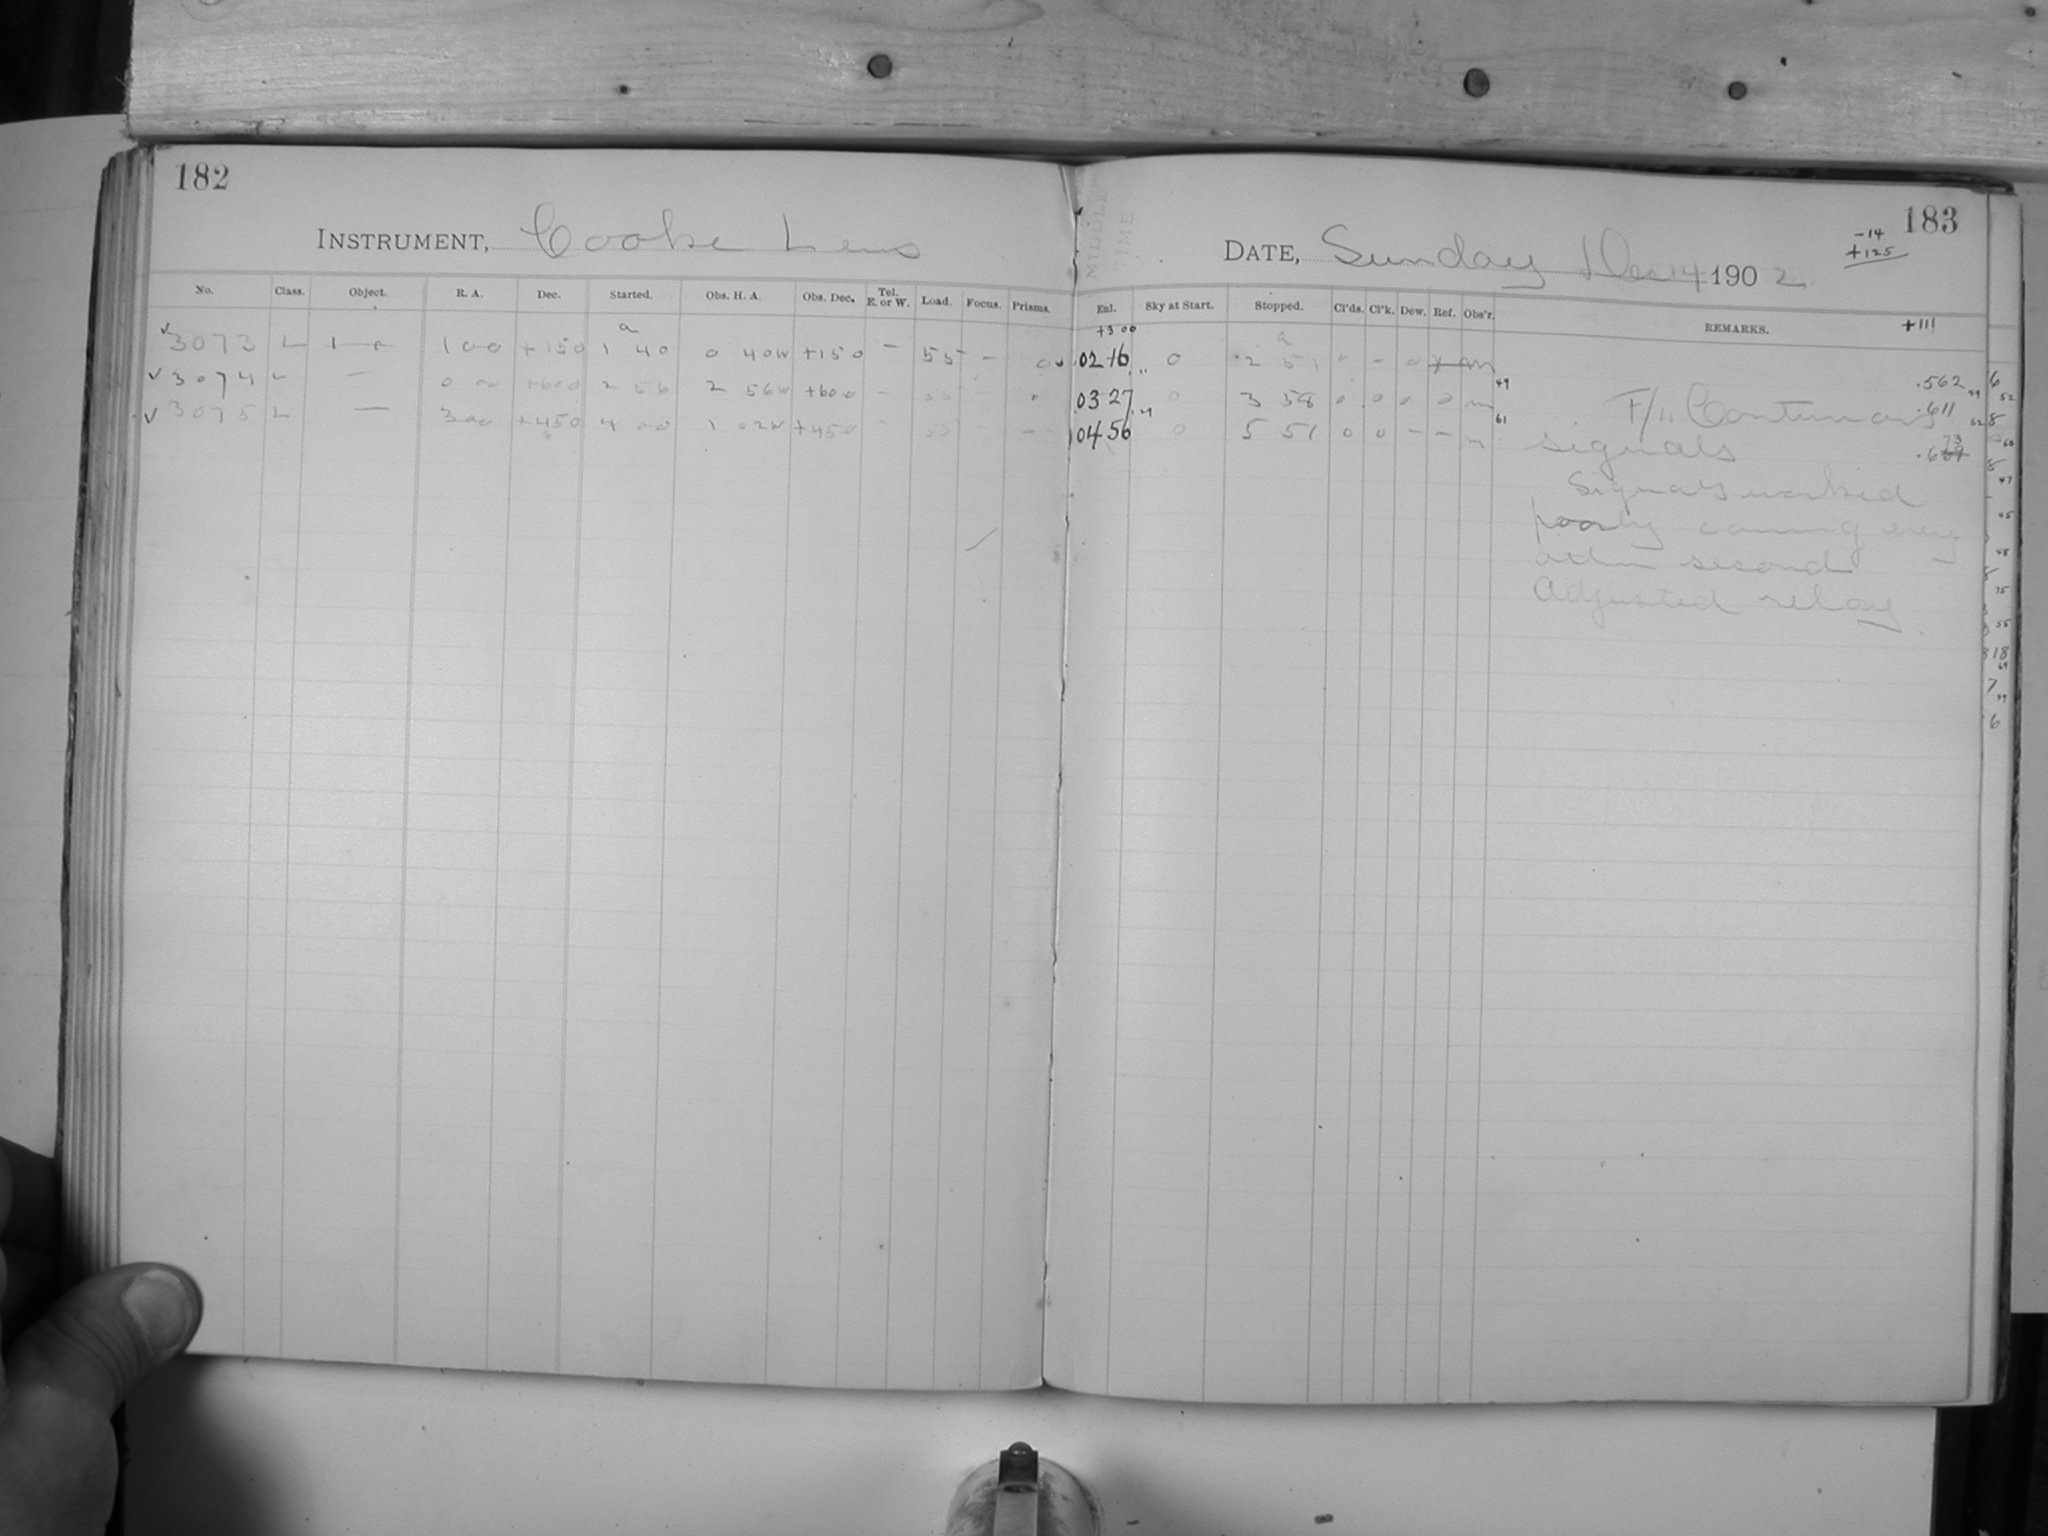 182
183
INSTRUMENT, Cooke Lens
DATE, Sunday Dec 14 1902
-14
+125
+111
MIDDLE
TIME
No. Class. Object. R. A. Dec. Started. Obs. H. A. Obs. Dec. Tel. E. or W. Load. Focus. Prisms. Enl. Sky at Start. Stopped. Cl'ds. Cl'k. Dew. Ref. Obs'r. REMARKS.
a +3 00 a
✓ 3073 L 1 00 +15 0 1 40 0 40W +15 0 — 55 — 0216 0 2 51
✓ 3074 L — 0 00 +60 0 2 56 2 56W +60 0 — 0327 0 3 58 0 0 0 0 m 49 .562
✓ 3075 L — 3 00 +45 0 4 00 1 02W +45 0 — 0456 0 5 51 0 0 — — m 61 .611
F/11 Continuous
signals
Signals worked
poorly coming every
other second
Adjusted relay